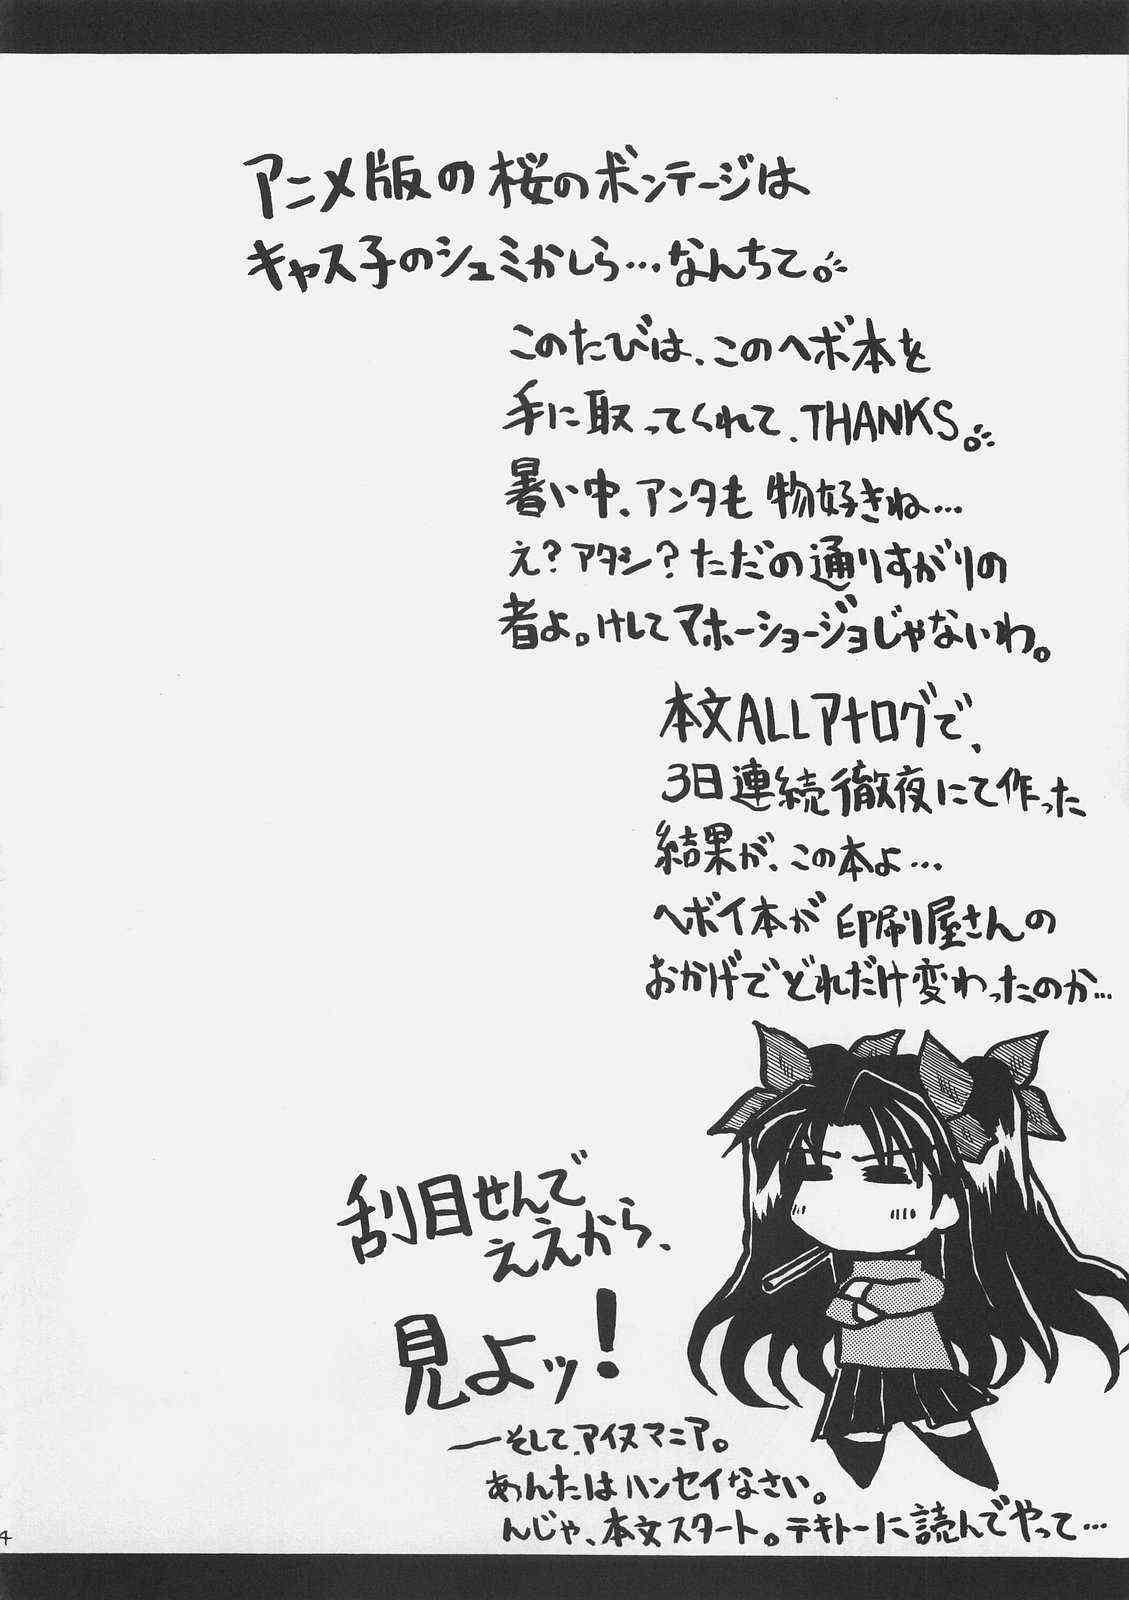 アニメ版の桜のボンテージは
キャス子のシュミかしら…なんちて。
このたびは、このヘボ本を
手に取ってくれて、THANKS。
暑い中、アンタも物好きね…
え？アタシ？ただの通りすがりの
者よ。けしてマホーショージョじゃないわ。
本文ALLアナログで、
3日連続徹夜にて作った
結果が、この本よ…
ヘボイ本が印刷屋さんの
おかげでどれだけ変わったのか…
刮目せんで
ええから、
見よッ！
──そして、アイヌマニア。
あんたはハンセイなさい。
んじゃ、本文スタート。テキトーに読んでやって…
4